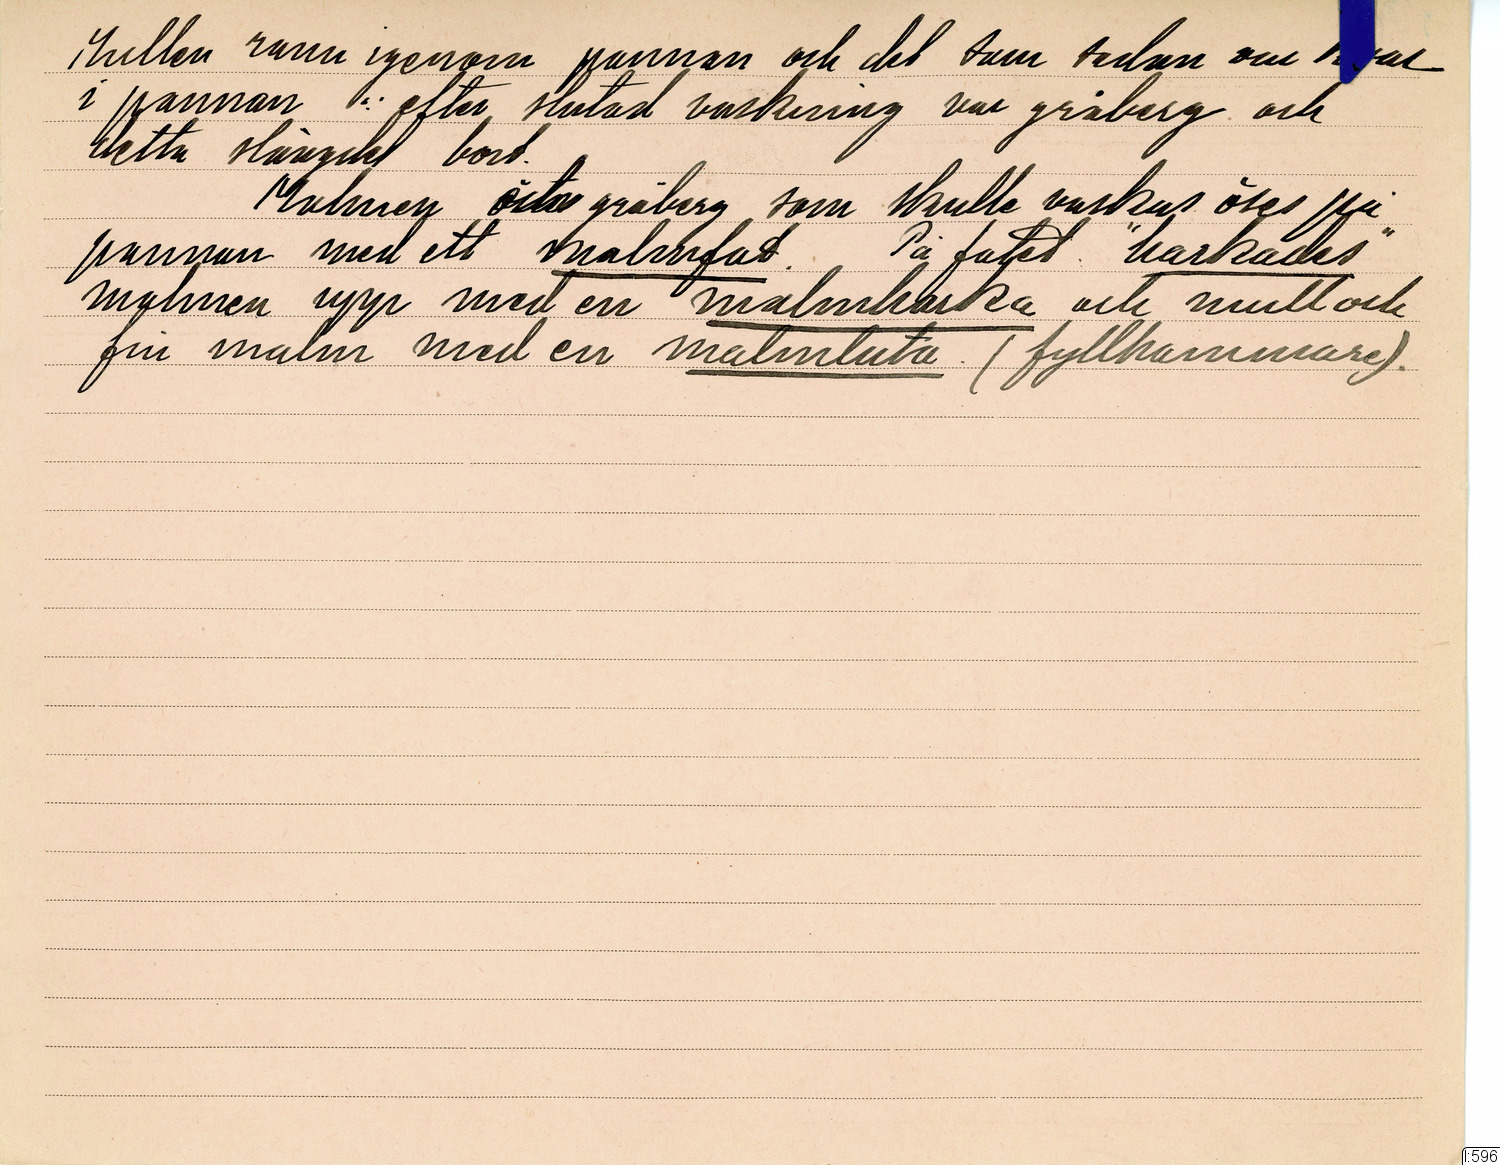 Mullen rann igenom pannan och det som sedan var kvar
i pannan efter slutad vaskning var gråberg och
detta slängdes bort.
Malmen gråberg som skulle vaskas östes på
pannan med ett malmfat. På fatet "harkades"
malmen upp med en malmharka och mull och
fin malm med en malmluta. (fyllhammare).
I:596